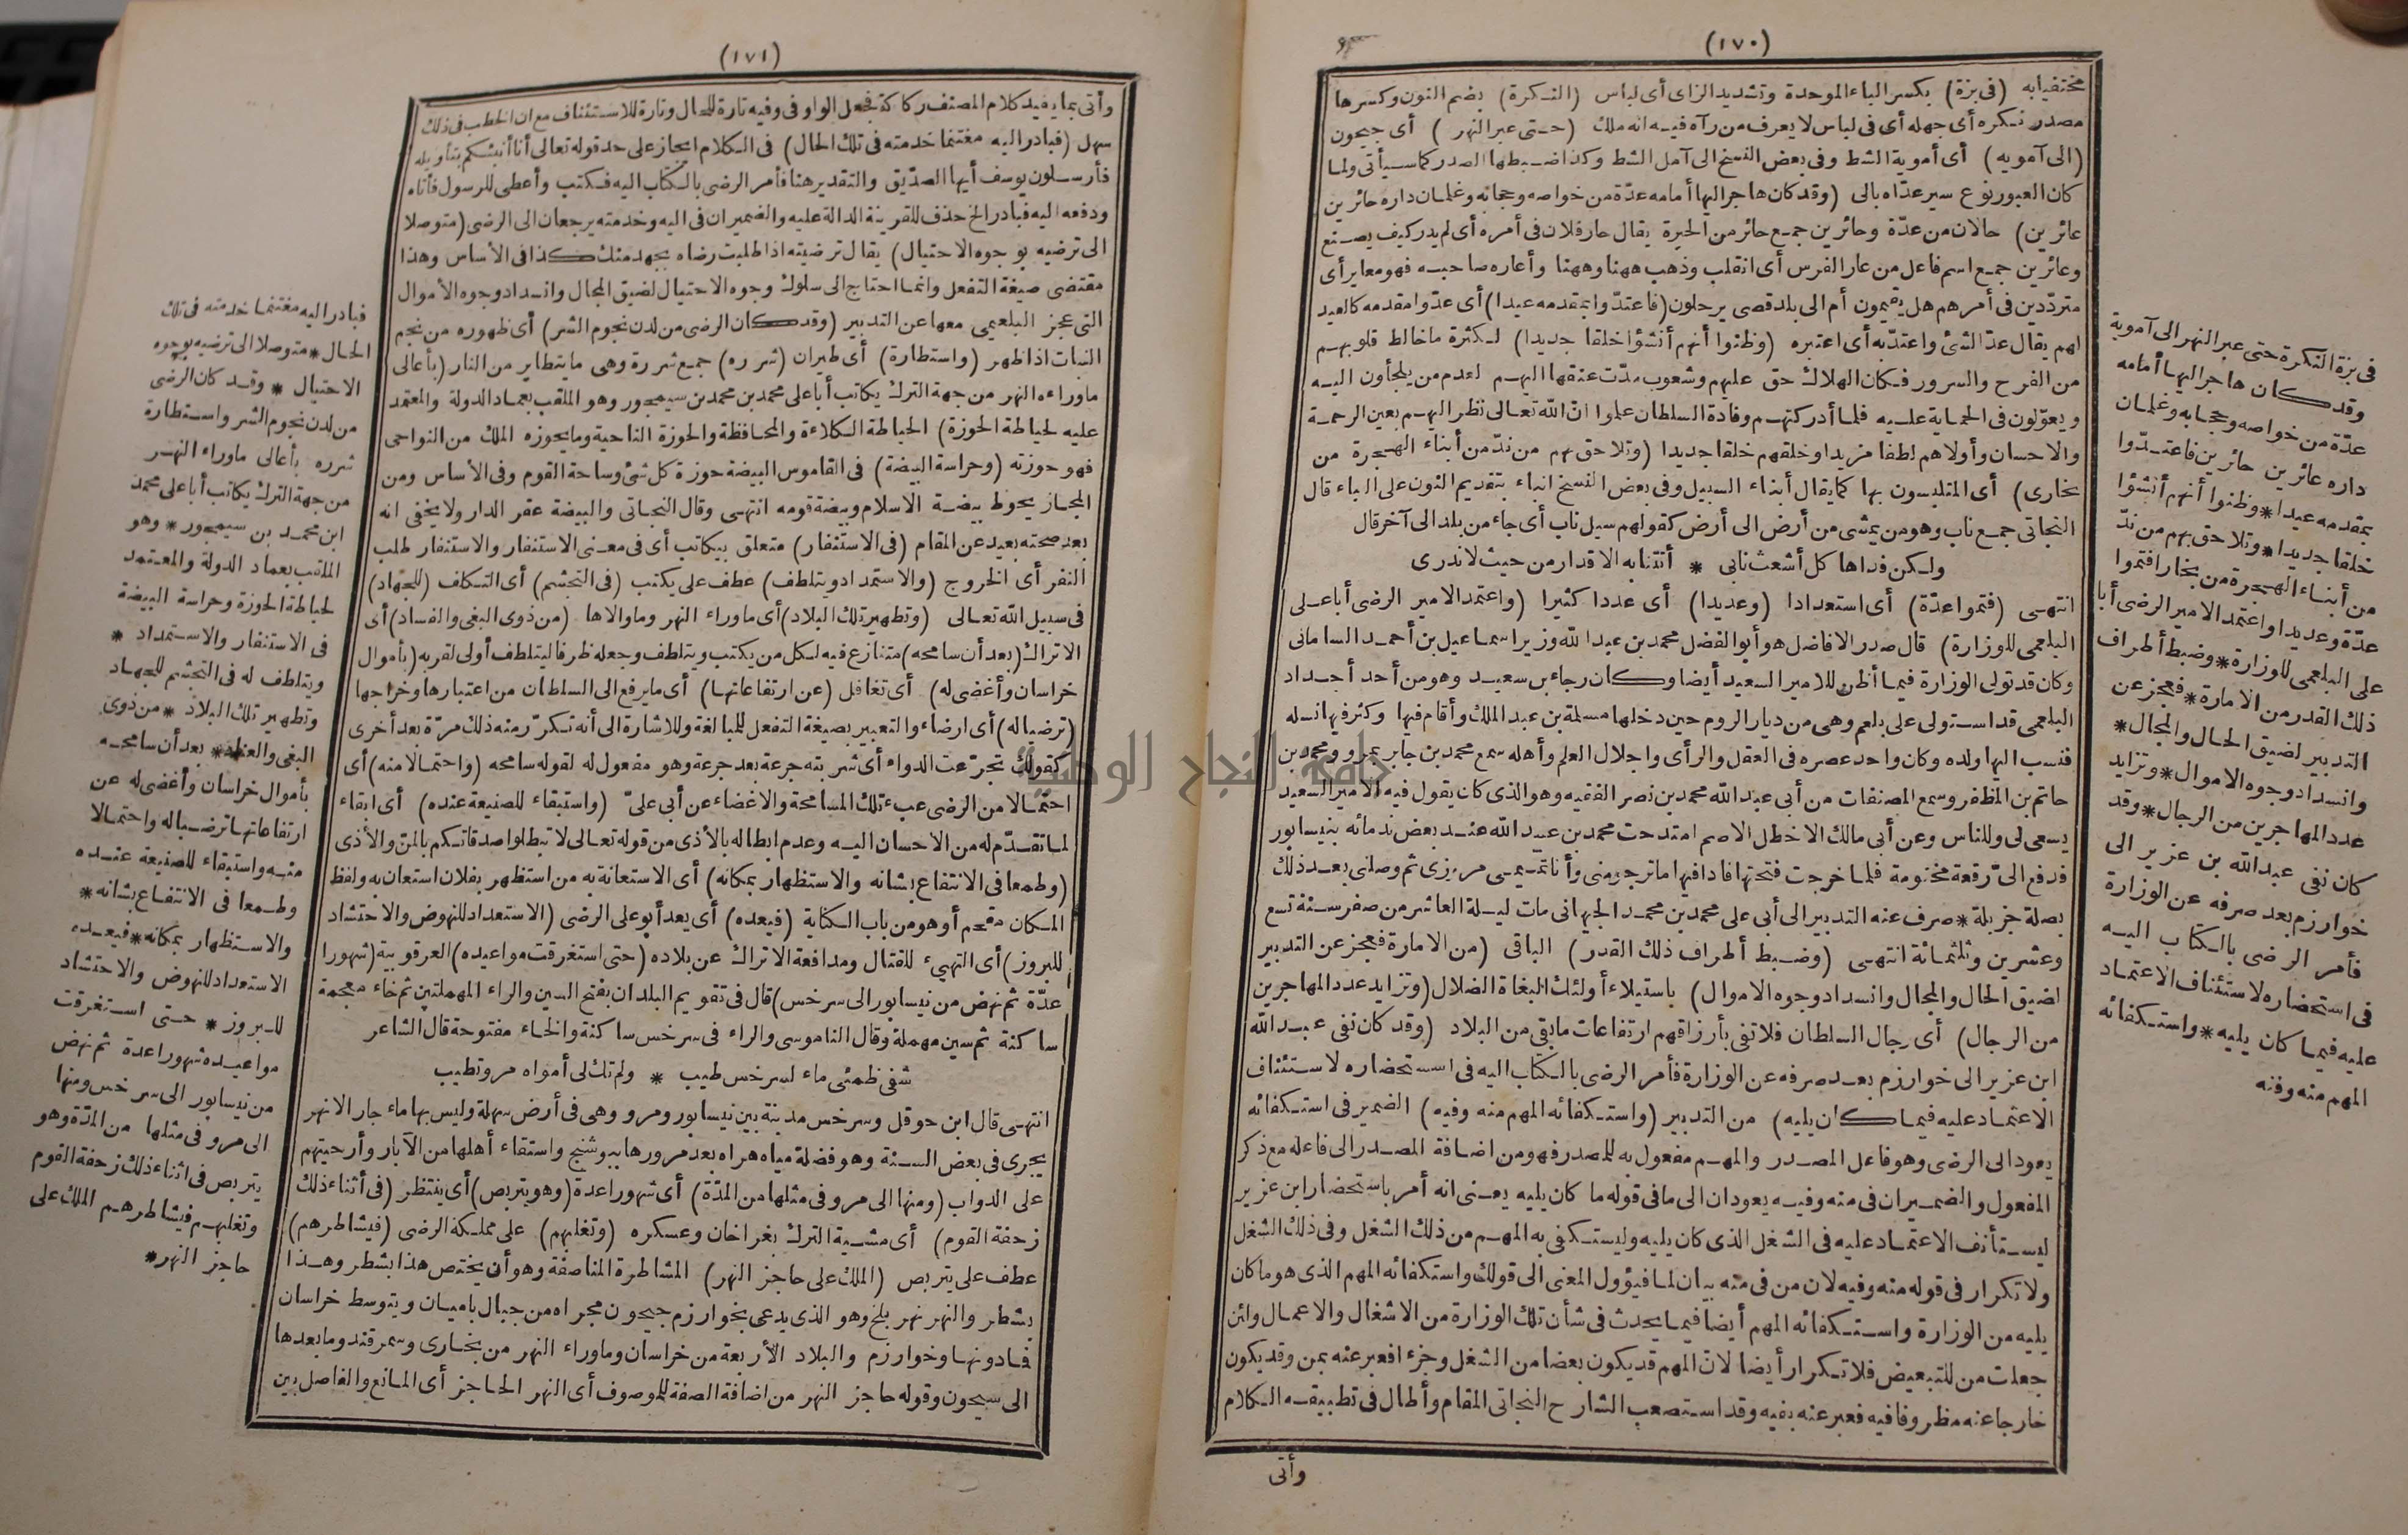 (١٧٠)
مختفيا به (فى بزة) بكسر الباء الموحدة وتشديد الزاى أى لباس (النكرة) بضم النون وكسرها
مصدر نكره أى جهله أى فى لباس لا يعرف من رآه فيه انه ملك (حتى عبر النهر) أى جيحون
(الى آمويه) أى أموية الشط وفى بعض النسخ الى آمل الشط وكذا ضبطها الصدر كما سيأتى ولما
كان العبور نوع سير عدّاه بالى (وقد كان هاجر اليها أمامه عدّة من خواصه وحجابه وغلمان داره حائرين
عائرين) حالان من عدّة وحائرين جمع حائر من الحيرة يقال حار فلان فى أمره أى لم يدر كيف يصنع
وعائرين جمع اسم فاعل من عار الفرس أى انقلب وذهب ههنا وههنا وأعاره صاحبه فهو معار أى
متردّدين فى أمرهم هل يقيمون أم الى بلد قصى يرحلون (فاعتدّوا بمقدمه عيدا) أى عدّوا مقدمه كالعيد
لهم يقال عدّ الشئ واعتدّ به أى اعتبره (وظنوا أنهم أنشؤا خلقا جديدا) لكثرة ما خالط قلوبهم
من الفرح والسرور فكان الهلاك حق عليهم وشعوب مدّت عنقها اليهم لعدم من يلجأون اليه
ويعوّلون فى الحماية عليه فلما أدركتهم وفادة السلطان علموا انّ الله تعالى نظر اليهم بعين الرحمة
والاحسان وأولاهم لطفا مزيدا وخلقهم خلقا جديدا (وتلاحق بهم من ندّ من أبناء الهجرة من
بخارى) أى المتلبسون بها كما يقال أبناء السبيل وفى بعض النسخ انباء بتقديم النون على الباء قال
النجاتى جمع ناب وهو من يمشى من أرض الى أرض كقولهم سيل ناب أى جاء من بلد الى آخر قال
ولكن فداها كل أشعث نابى * أتتنا به الاقدار من حيث لا ندرى
انتهى (فتموا عدّة) أى استعدادا (وعديدا) أى عددا كثيرا (واعتمد الامير الرضى أبا على
البلعمى للوزارة) قال صدر الافاضل هو أبو الفضل محمد بن عبد الله وزير اسماعيل بن أحمد السامانى
وكان قد تولى الوزارة فيما أظن للامير السعيد أيضا وكان رجاء بن سعيد وهو من أحد أجداد
البلعمى قد استولى على بلعم وهى من ديار الروم حين دخلها مسلمة بن عبد الملك وأقام فيها وكثر فيها نسله
فنسب اليها ولده وكان واحد عصره فى العقل والرأى واجلال العلم وأهله سمع محمد بن جابر بمرو ومحمد بن
حاتم بن المظفر وسمع المصنفات من أبى عبد الله محمد بن نصر الفقيه وهو الذى كان يقول فيه الامير السعيد
يسعى لى وللناس وعن أبى مالك الاخطل الاصم امتدحت محمد بن عبيد الله عند بعض ندمائه بنيسابور
فدفع الىّ رقعة مختومة فلما خرجت فتحتها فاذا فيها ما ترجومنى وأنا تميمى مربزى ثم وصلنى بعد ذلك
بصلة جزيلة * صرف عنه التدبير الى أبى على محمد بن محمد الجيهانى مات ليلة العاشر من صفر سنة تسع
وعشرين وثلثمائة انتهى (وضبط أطراف ذلك القدر) الباقى (من الامارة فعجز عن التدبير
لضيق الحال والمجال وانسداد وجوه الاموال) باستيلاء أولئك البغاة الضلال (وتزايد عدد المهاجرين
من الرجال) أى رجال السلطان فلا تفى بأرزاقهم ارتفاعات ما بقى من البلاد (وقد كان نفى عبد الله
ابن عزير الى خوارزم بعد صرفه عن الوزارة فأمر الرضى بالكتاب اليه فى استحضاره لاستئناف
الاعتماد عليه فيما كان يليه) من التدبير (واستكفائه المهم منه وفيه) الضمير فى استكفائه
يعود الى الرضى وهو فاعل المصدر والمهم مفعول به للمصدر فهو من اضافة المصدر الى فاعله مع ذكر
المفعول والضميران فى منه وفيه يعودان الى ما فى قوله ما كان يليه يعنى انه أمر باستحضار ابن عزير
ليستأنف الاعتماد عليه فى الشغل الذى كان يليه وليستكفى به المهم من ذلك الشغل وفى ذلك الشغل
ولا تكرار فى قوله منه وفيه لان من فى منه بيان لما فيؤول المعنى الى قولك واستكفائه المهم الذى هو ما كان
يليه من الوزارة واستكفائه المهم أيضا فيما يحدث فى شأن تلك الوزارة من الاشغال والاعمال وائن
جعلت من للتبعيض فلا تكرار أيضا لانّ المهم قد يكون بعضا من الشغل وجزءا فعبر عنه بمن وقد يكون
خارجا عنه مظروفا فيه فعبر عنه بفيه وقد استصعب الشارح النجاتى المقام وأطال فى تطبيقه الكلام
وأتى
فى بزة النكرة حتى عبر النهر الى آموية
وقد كان هاجر اليها أمامه
عدّة من خواصه وحجابه وغلمان
داره عائرين حائرين فاعتدّوا
بمقدمه عيدا * وظنوا أنهم أنشؤا
خلقا جديدا * وتلاحق بهم من ندّ
من أبناء الهجرة من بخارا فتموا
عدّة وعديدا واعتمد الامير الرضى أبا
على البلعمى للوزارة * وضبط أطراف
ذلك القدر من الامارة * فعجز عن
التدبير لضيق الحال والمجال *
وانسداد وجوه الاموال * وتزايد
عدد المهاجرين من الرجال * وقد
كان نفى عبد الله بن عزير الى
خوارزم بعد صرفه عن الوزارة
فأمر الرضى بالكتاب اليه
فى استحضاره لاستئناف الاعتماد
عليه فيما كان يليه * واستكفائه
المهم منه وفيه
(١٧١)
وأتى بما يفيد كلام المصنف ركاكة فجعل الواو فى وفيه تارة للحال وتارة للاستئناف مع ان الخطب فى ذلك
سهل (فبادر اليه مغتنما خدمته فى تلك الحال) فى الكلام ايجاز على حد قوله تعالى أنا أنبئكم بتأويله
فأرسلون يوسف أيها الصدّيق والتقدير هنا فأمر الرضى بالكتاب اليه فكتب وأعطى للرسول فأتاه
ودفعه اليه فبادر الخ حذف للقرينة الدالة عليه والضميران فى اليه وخدمته يرجعان الى الرضى (متوصلا
الى ترضيه بوجوه الاحتيال) يقال ترضيته اذا طلبت رضاه بجهد منك كذا فى الأساس وهذا
مقتضى صيغة التفعل وانما احتاج الى سلوك وجوه الاحتيال لضيق المجال وانسداد وجوه الأموال
التى عجز البلعمى معها عن التدبير (وقد كان الرضى من لدن نجوم الشر) أى ظهوره من نجم
النبات اذا ظهر (واستطارة) أى طيران (شرره) جمع شررة وهى ما يتطاير من النار (بأعالى
ماوراءالنهر من جهة الترك يكاتب أبا على محمد بن محمد بن سيمجور وهو الملقب بعماد الدولة والمعتمد
عليه لحياطة الحوزة) الحياطة الكلاءة والمحافظة والحوزة الناحية وما يحوزه الملك من النواحى
فهو حوزته (وحراسة البيضة) فى القاموس البيضة حوزة كل شئ وساحة القوم وفى الأساس ومن
المجاز يحوط بيضة الاسلام وبيضة قومه انتهى وقال النجاتى والبيضة عقر الدار ولا يخفى انه
بعد صحته بعيد عن المقام (فى الاستنفار) متعلق بيكاتب أى فى معنى الاستنفار والاستنفار طلب
النفر أى الخروج (والاستمداد ويتلطف) عطف على يكتب (فى التجشم) أى التكلف (للجهاد)
فى سبيل الله تعالى (وتطهير تلك البلاد) أى ماوراء النهر وما والاها (من ذوى البغى والفساد) أى
الاتراك (بعد أن سامحه) متنازع فيه لكل من يكتب ويتلطف وجعله ظرفا ليتلطف أولى لقربه (بأموال
خراسان وأغضى له) أى تغافل (عن ارتفاعاتها) أى ما يرفع الى السلطان من اعتبارها وخراجها
(ترضيا له) أى ارضاء والتعبير بصيغة التفعل للمبالغة وللاشارة الى أنه تكرّر منه ذلك مرّة بعد أخرى
كقولك تجرّعت الدواء أى شربته جرعة بعد جرعة وهو مفعول له لقوله سامحه (واحتمالا منه) أى
احتمالا من الرضى عبء تلك المسامحة والاغضاء عن أبى علىّ (واستبقاء للصنيعة عنده) أى ابقاء
لما تقدّم له من الاحسان اليه وعدم ابطاله بالأذى من قوله تعالى لا تبطلوا صدقاتكم بالمنّ والأذى
(وطمعا فى الانتفاع بشانه والاستظهار بمكانه) أى الاستعانة به من استظهر بفلان استعان به ولفظ
المكان مقحم أو هو من باب الكناية (فيعده) أى يعد أبو على الرضى (الاستعداد للنهوض والاحتشاد
للبروز) أى التهيء للقتال ومدافعة الاتراك عن بلاده (حتى استغرقت مواعيده) العرقوبية (شهورا
عدّة ثم نهض من نيسابور الى سرخس) قال فى تقويم البلدان بفتح السين والراء المهملتين ثم خاء معجمة
ساكنة ثم سين مهملة وقال الناموسى والراء فى سرخس ساكنة والخاء مفتوحة قال الشاعر
شفى ظمئى ماء لسرخس طيب * ولم تك لى أمواه مرو تطيب
انتهى قال ابن حوقل وسرخس مدينة بين نيسابور ومرو وهى فى أرض سهلة وليس بها ماء جار الا نهر
يجرى فى بعض السنة وهو فضلة مياه هراه بعد مرورها ببوشنج واستقاء أهلها من الآبار وأرحيتهم
على الدواب (ومنها الى مرو فى مثلها من المدّة) أى شهورا عدة (وهو يتربص) أى ينتظر (فى أثناء ذلك
زحفة القوم) أى مشية الترك بغراخان وعسكره (وتغلبهم) على مملكة الرضى (فيشاطرهم)
عطف على يتربص (الملك على حاجز النهر) المشاطرة المناصفة وهو أن يختص هذا بشطر وهذا
بشطر والنهر نهر بلخ وهو الذى يدعى بخوارزم جيحون مجراه من جبال باميان ويتوسط خراسان
فادونها وخوارزم والبلاد الأربعة من خراسان وماوراء النهر من بخارى وسمرقند وما بعدها
الى سيحون وقوله حاجز النهر من اضافة الصفة للموصوف أى النهر الحاجز أى المانع والفاصل بين
فبادر اليه مغتنما خدمته فى تلك
الحال * متوصلا الى ترضيه بوجوه
الاحتيال * وقد كان الرضى
من لدن نجوم الشر واستطارة
شرره بأعالى ماوراء النهر
من جهة الترك يكاتب أبا على محمد
ابن محمد بن سيمجور * وهو
الملقب بعماد الدولة والمعتمد
لحياطة الحوزة وحراسة البيضة
فى الاستنفار والاستمداد *
ويتلطف له فى التجشم للجهاد
وتطهير تلك البلاد * من ذوى
البغى والعناد * بعد أن سامحه
بأموال خراسان وأغضى له عن
ارتفاعاتها ترضياله واحتمالا
منه واستبقاء للصنيعة عنده
وطمعا فى الانتفاع بشانه *
والاستظهار بمكانه * فيعده
الاستعداد للنهوض والاحتشاد
للبروز * حتى استغرقت
مواعيده شهورا عدة ثم نهض
من نيسابور الى سرخس ومنها
الى مرو فى مثلها من المدّة وهو
يتربص فى اثناء ذلك زحفة القوم
وتغلبهم فيشاطرهم الملك على
حاجز النهر *
جامعة النجاح الوطنية